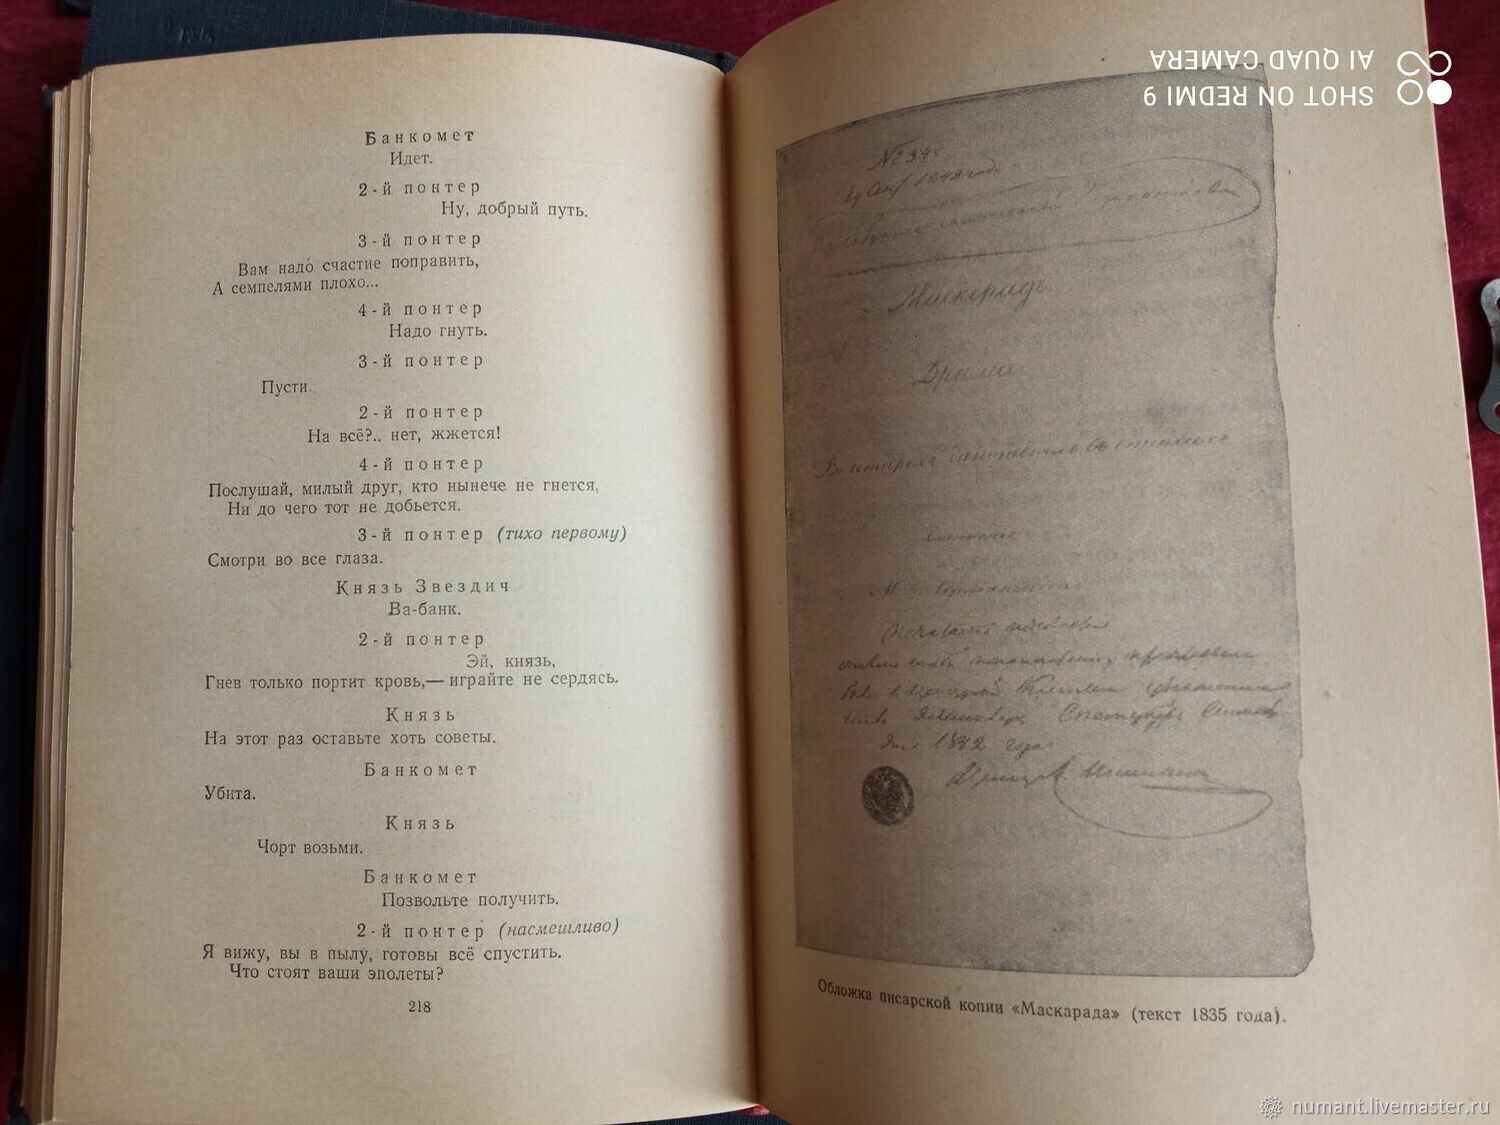 Банкомет
Идет.
2-й понтер
Ну, добрый путь.
3-й понтер
Вам надо счастие поправить,
А семпелями плохо...
4-й понтер
Надо гнуть.
3-й понтер
Пусти.
2-й понтер
На всё?.. нет, жжется!
4-й понтер
Послушай, милый друг, кто нынече не гнется,
Ни до чего тот не добьется.
3-й понтер (тихо первому)
Смотри во все глаза.
Князь Звездич
Ва-банк.
2-й понтер
Эй, князь,
Гнев только портит кровь,— играйте не сердясь.
Князь
На этот раз оставьте хоть советы.
Банкомет
Убита.
Князь
Чорт возьми.
Банкомет
Позвольте получить.
2-й понтер (насмешливо)
Я вижу, вы в пылу, готовы всё спустить.
Что стоят ваши эполеты?
218
SHOT ON REDMI 9
AI QUAD CAMERA
1842
Маскерадъ
Драма
1842 года
Обложка писарской копии «Маскарада» (текст 1835 года).
numant.livemaster.ru